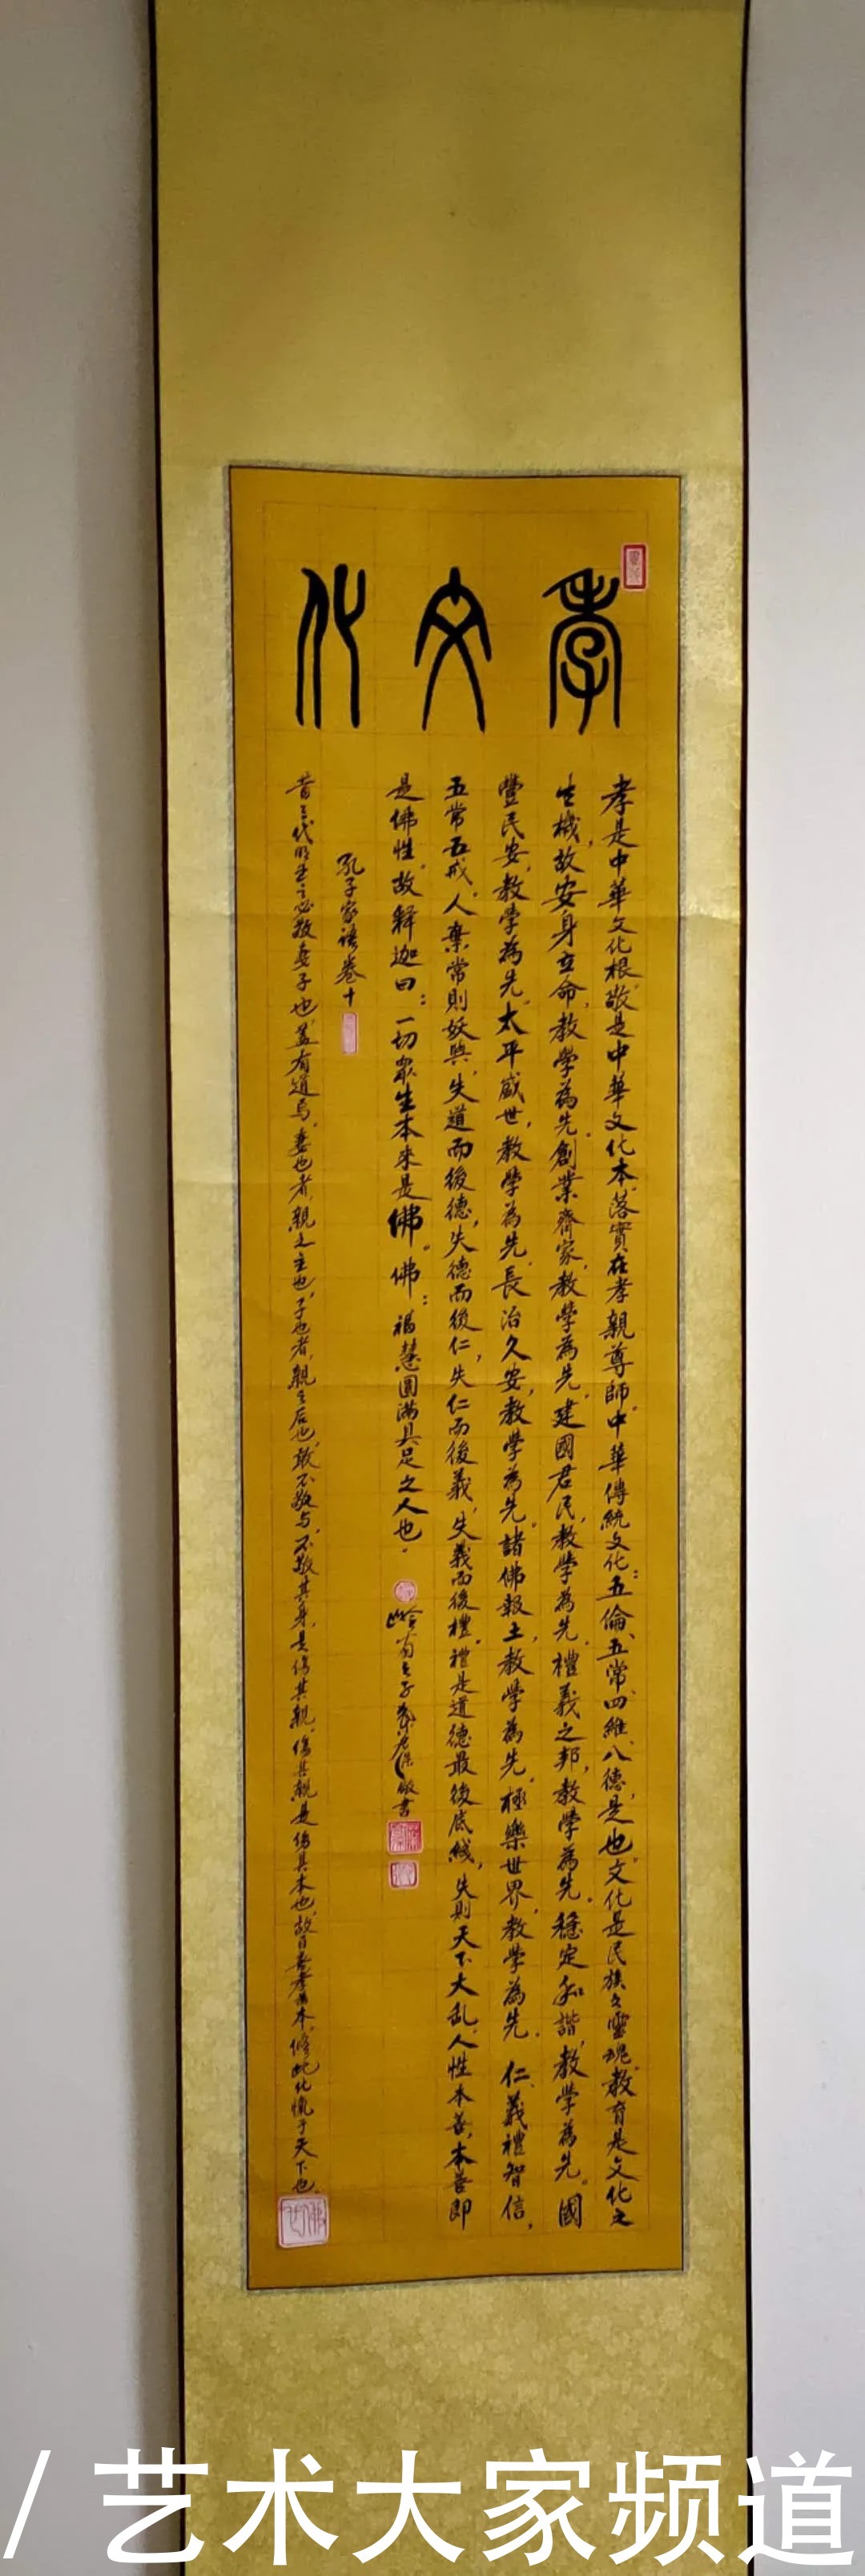 孝文化
孝是中華文化根，敬是中華文化本。落實在孝親尊師。中華傳統文化：五倫、五常、四維、八德，是也。文化是民族之靈魂，教育是文化之
生機，故安身立命，教學為先。創業齊家，教學為先。建國君民，教學為先。禮義之邦，教學為先。穩定和諧，教學為先。國
豐民安，教學為先。太平盛世，教學為先。長治久安，教學為先。諸佛報土，教學為先。極樂世界，教學為先。仁、義、禮、智、信，
五常五戒。人棄常則妖興，失道而後德，失德而後仁，失仁而後義，失義而後禮。禮是道德最後底綫，失則天下大乱。人性本善，本善即
是佛性。故释迦曰：一切眾生本来是佛。佛：福慧圓滿具足之人也。
敬書
孔子家語卷十
昔三代明王之必敬妻子也，蓋有道焉。妻也者，親之主也，子也者，親之后也，敢不敬与？不敬其身，是伤其親，傷其親，是伤其本也。故曰 孝 本，修此化愾于天下也。
/ 艺术大家频道